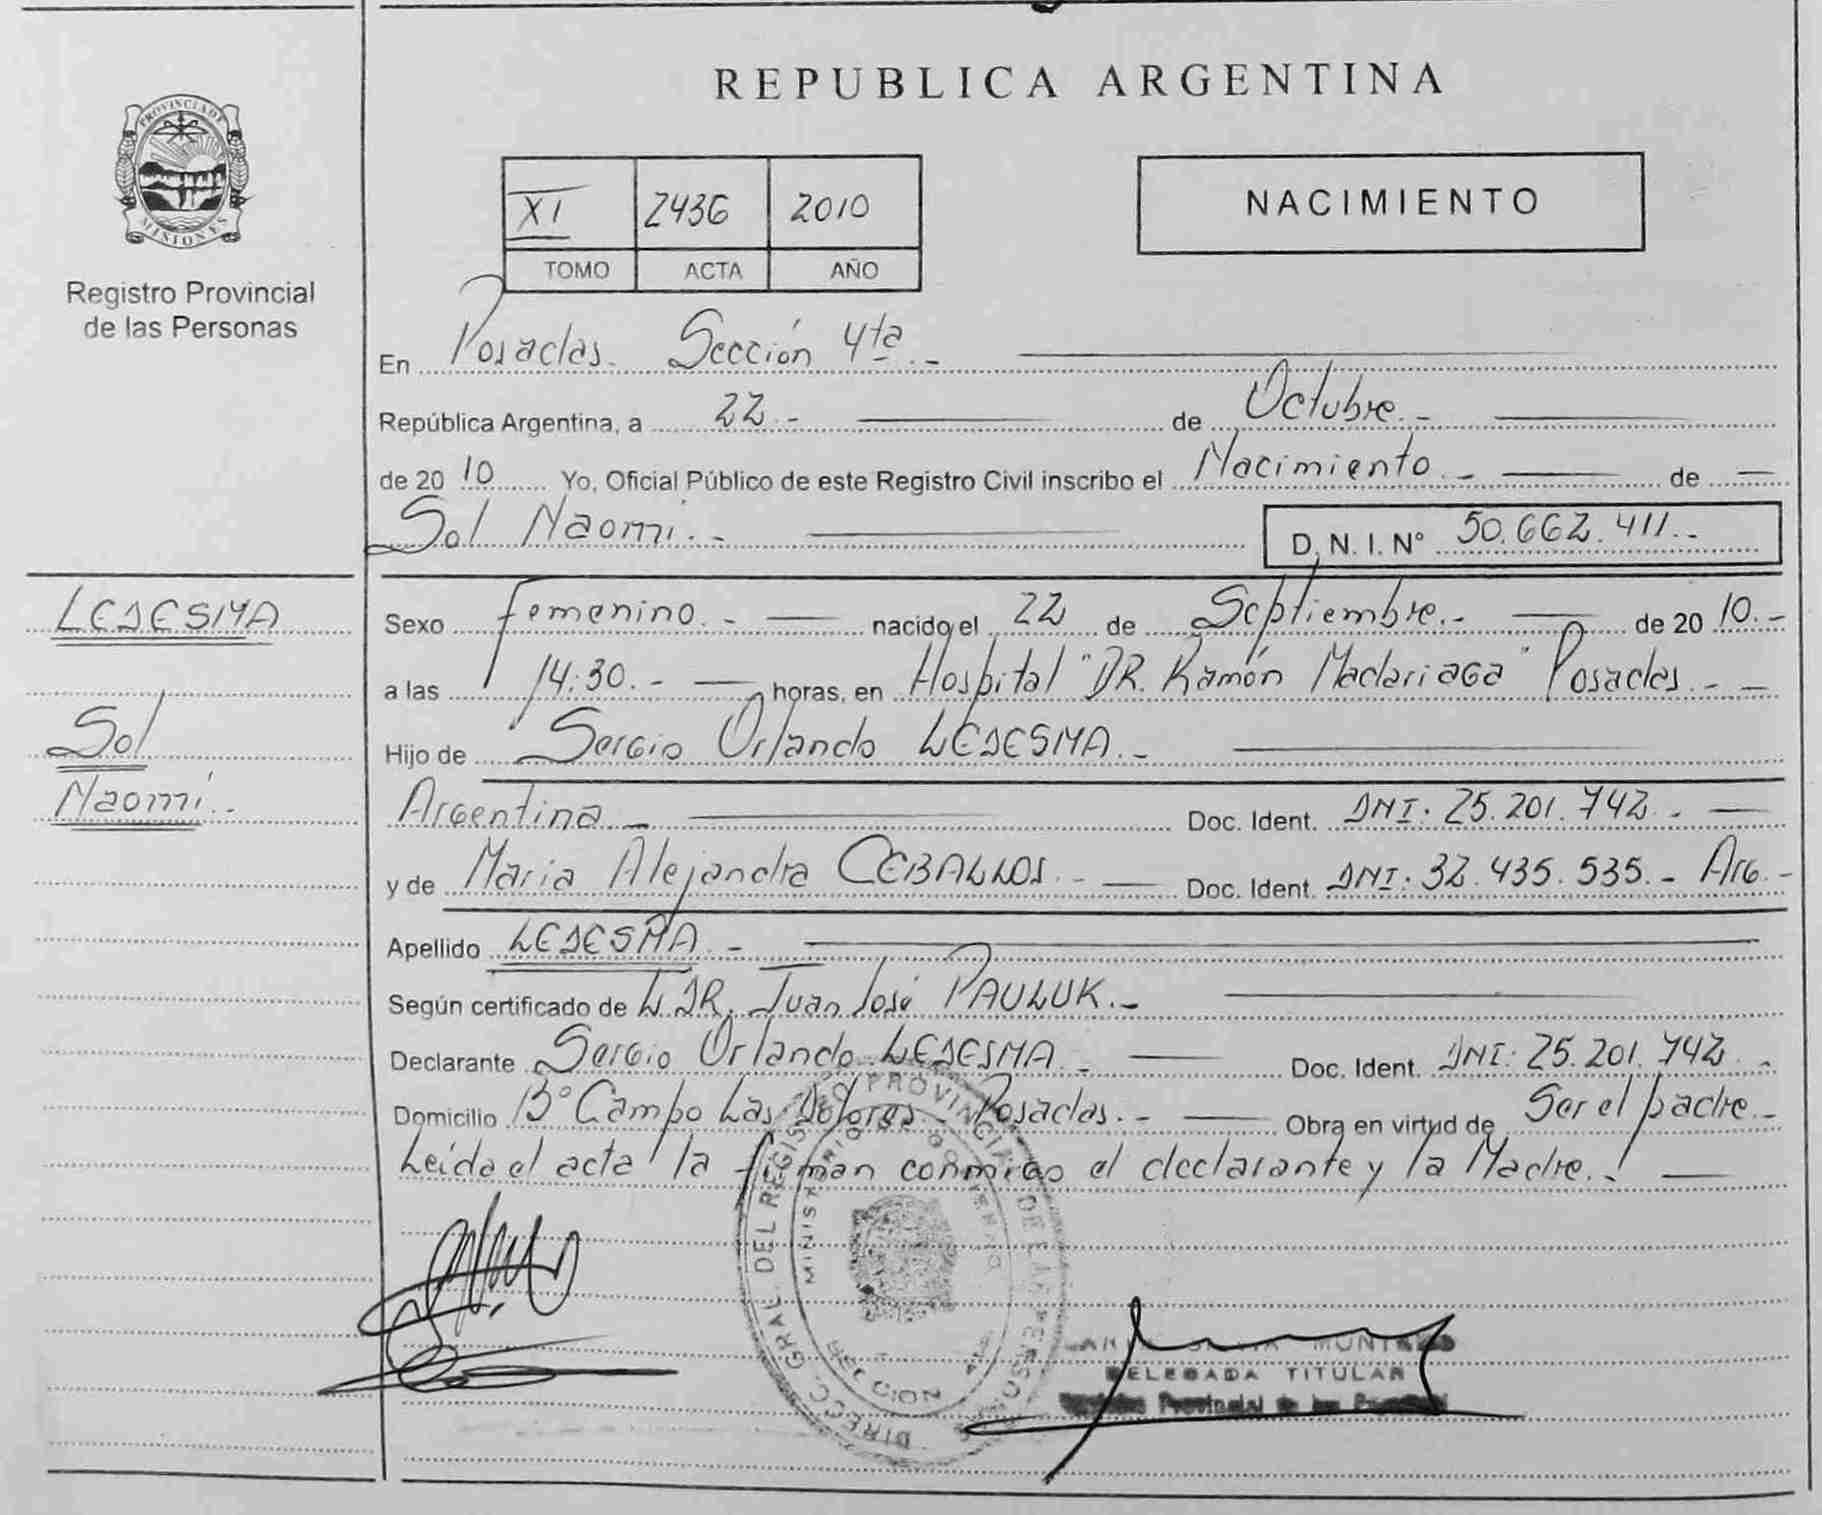 REPUBLICA ARGENTINA
PROVINCIA DE
MISIONES
Registro Provincial
de las Personas
XI 2436 2010
TOMO ACTA AÑO
NACIMIENTO
En Posadas. Sección 4ta.-
República Argentina, a 22.- de Octubre.-
de 2010 Yo, Oficial Público de este Registro Civil inscribo el Nacimiento.- de
Sol Naomi.- D. N. I. N° 50.662.411.-
LEDESMA
Sol
Naomi.-
Sexo femenino.- nacido el 22 de Septiembre.- de 2010.-
a las 14:30.- horas, en Hospital "DR. Ramón Madariaga" Posadas.-
Hijo de Sergio Orlando LEDESMA.-
Argentina.- Doc. Ident. DNI: 25.201.742.-
y de Maria Alejandra CEBALLOS.- Doc. Ident. DNI: 32.435.535.- Arg.-
Apellido LEDESMA.-
Según certificado de L DR. Juan José PAULUK.-
Declarante Sergio Orlando LEDESMA.- Doc. Ident. DNI: 25.201.742.-
Domicilio B° Campo Las Dolores - Posadas.- Obra en virtud de Ser el padre.-
Leída el acta la firman conmigo el declarante y la Madre.!
DIRECC. GRAL. DEL REGISTRO PROVINCIAL DE LAS PERSONAS
MINISTERIO DE GOBIERNO
SECCION 4ta
DELEGADA TITULAR
Provincial de las Personas